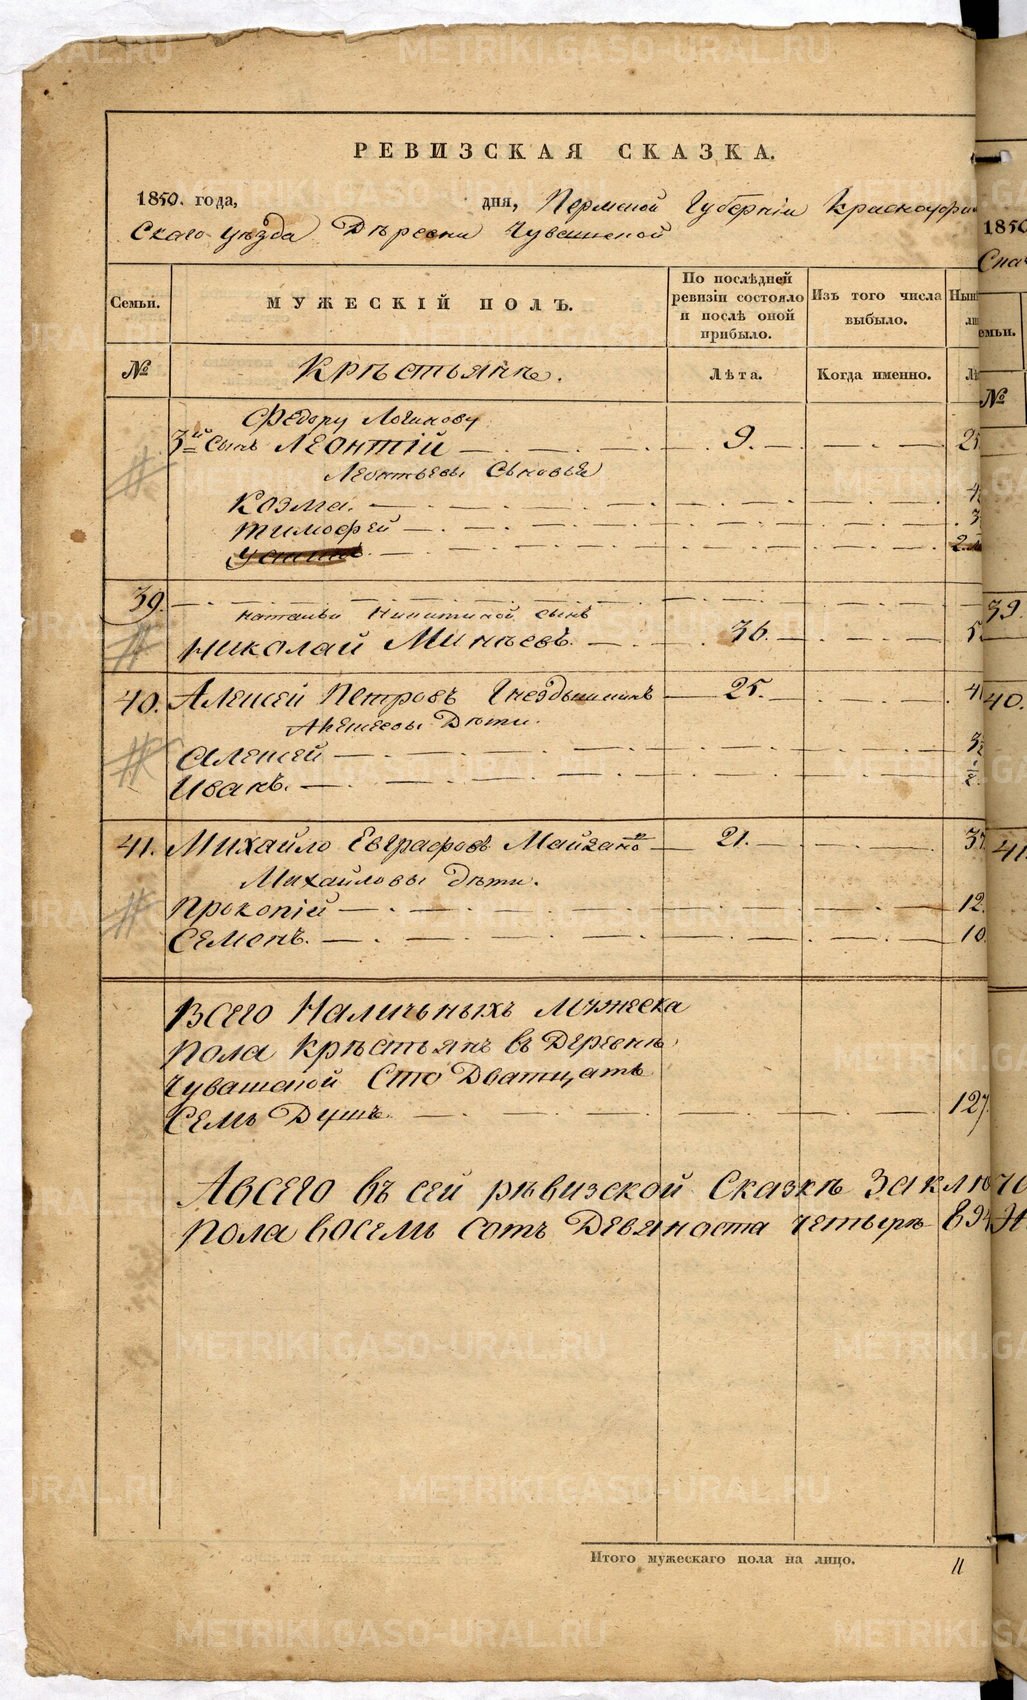 РЕВИЗСКАЯ СКАЗКА.
1850. года, дня, Пермской Губерніи Красноуфим
Скаго уѣзда Дѣревни Чувашской
Семьи.
МУЖЕСКІЙ ПОЛЪ.
По послѣдней ревизіи состояло и послѣ оной прибыло.
Изъ того числа выбыло.
№
Крѣстьянѣ.
Лѣта.
Когда именно.
Федору Логинову
3й Сынъ Леонтій 9.
Леонтьевы Сыновья
Козма.
Тимофей
39.
Натальи Никитиной сынъ
Николай Минѣевъ. 36.
40. Алексей Петровъ 25.
Дѣти.
Алексей
Иванъ.
41. Михайло Евграфовъ 21. 37
Михайловы дѣти.
Прокопій 12.
Семенъ. 10.
Всего Наличьныхъ Мужеска
пола крѣстьянъ въ Деревнѣ
Чувашской Сто Дватцать
Семь Душъ. 127.
Авсего въ сей рѣвизской Сказкѣ Заключ
пола восемь сотъ Девяноста четырѣ 894
Итого мужескаго пола на лицо. 11
1850
емьи.
№
39.
40.
41
METRIKI.GASO-URAL.RU